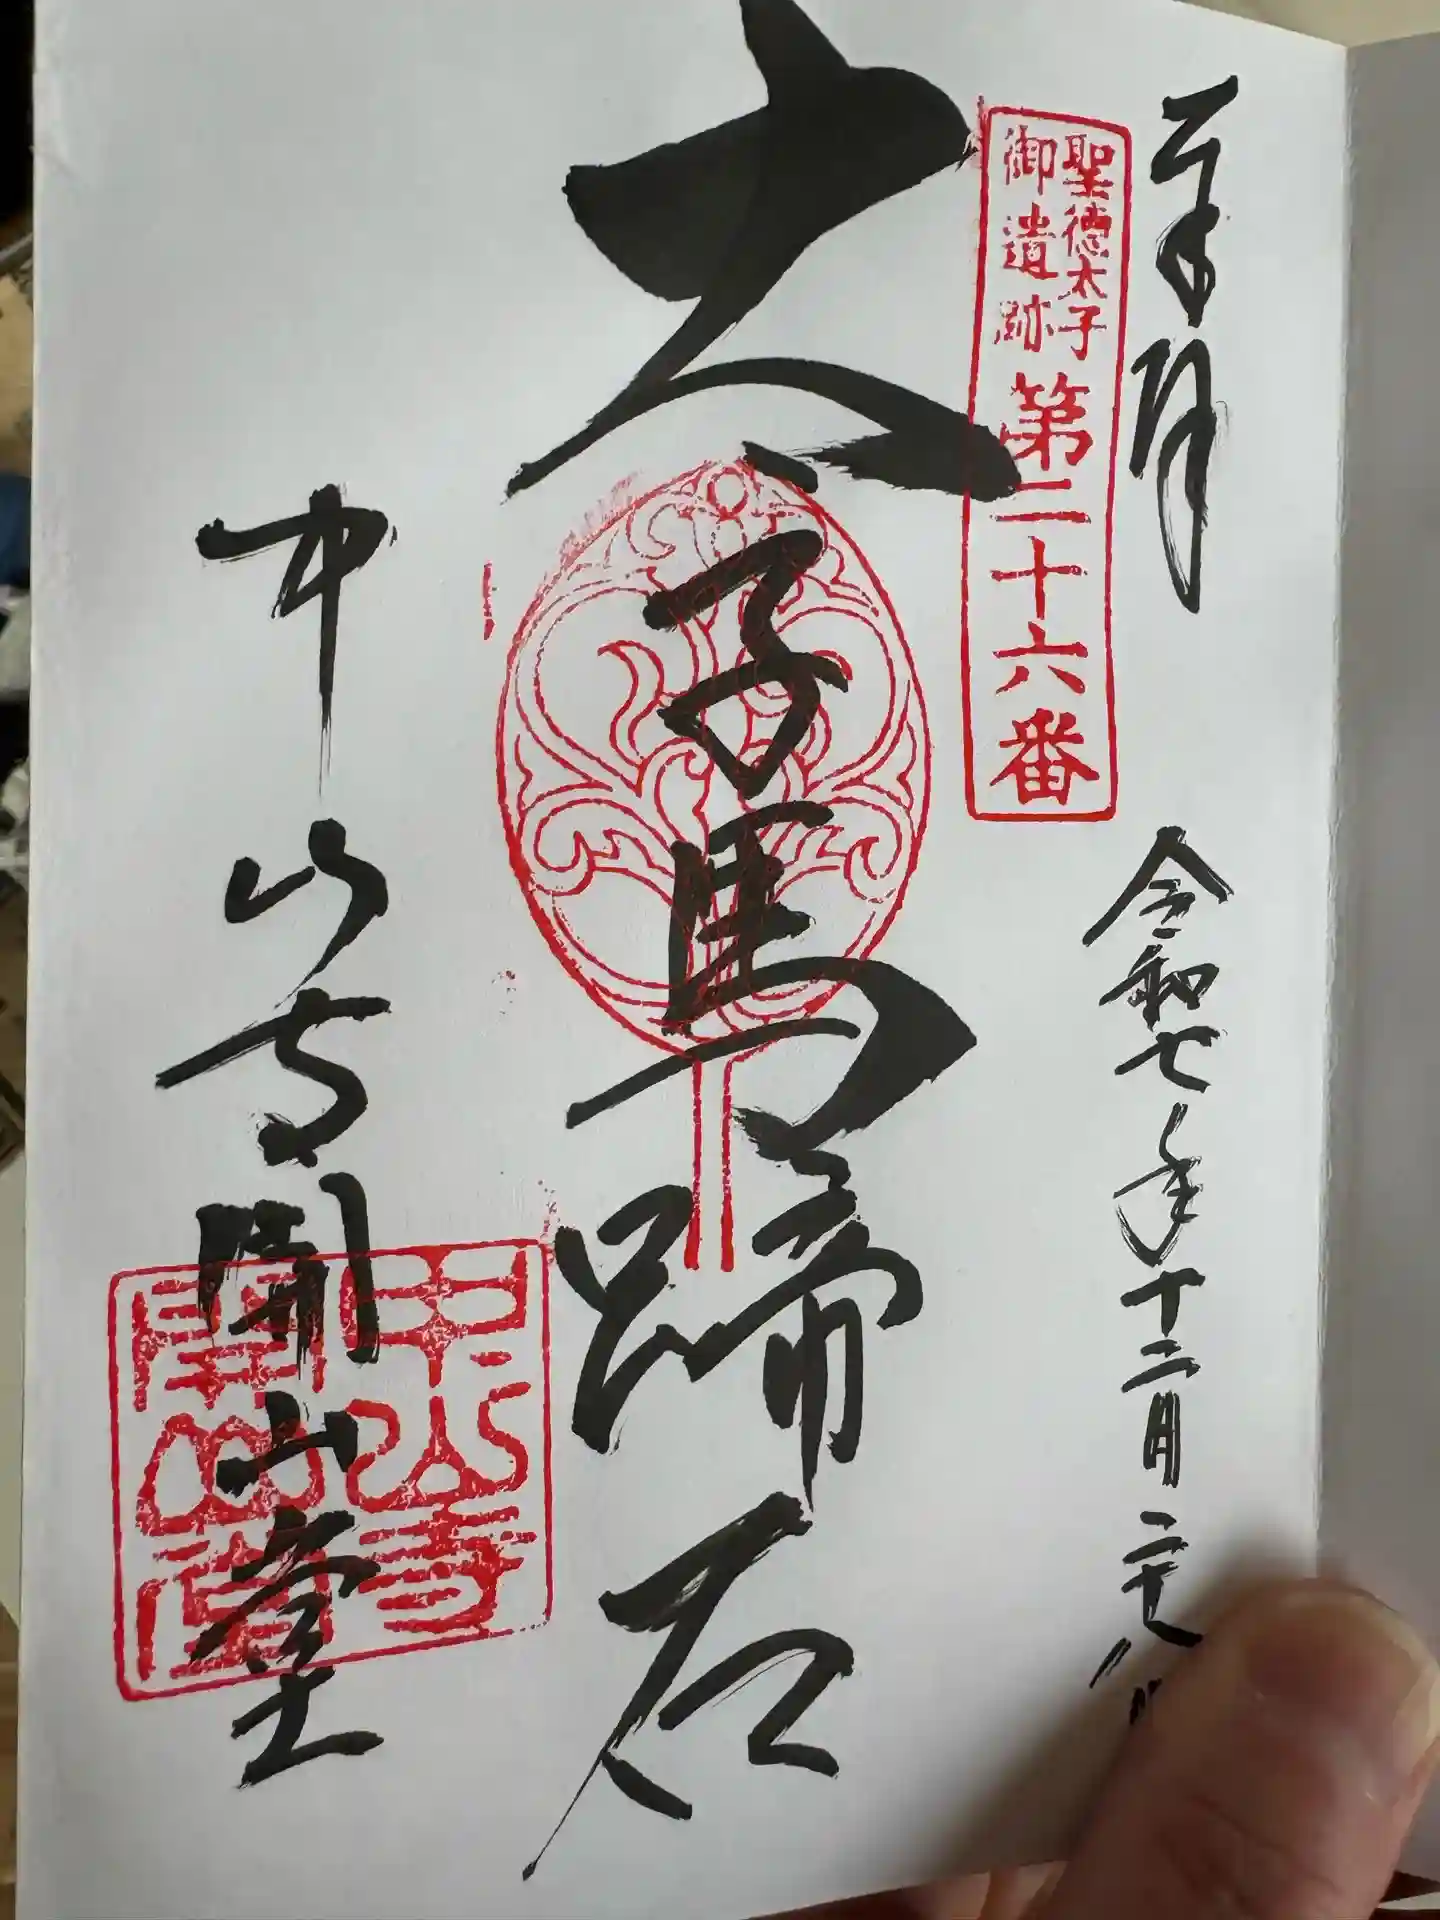 奉拝
令和七年十二月二十八日
聖徳太子
御遺跡
第二十六番
太子馬蹄石
中山寺開山堂
中山寺
開山堂